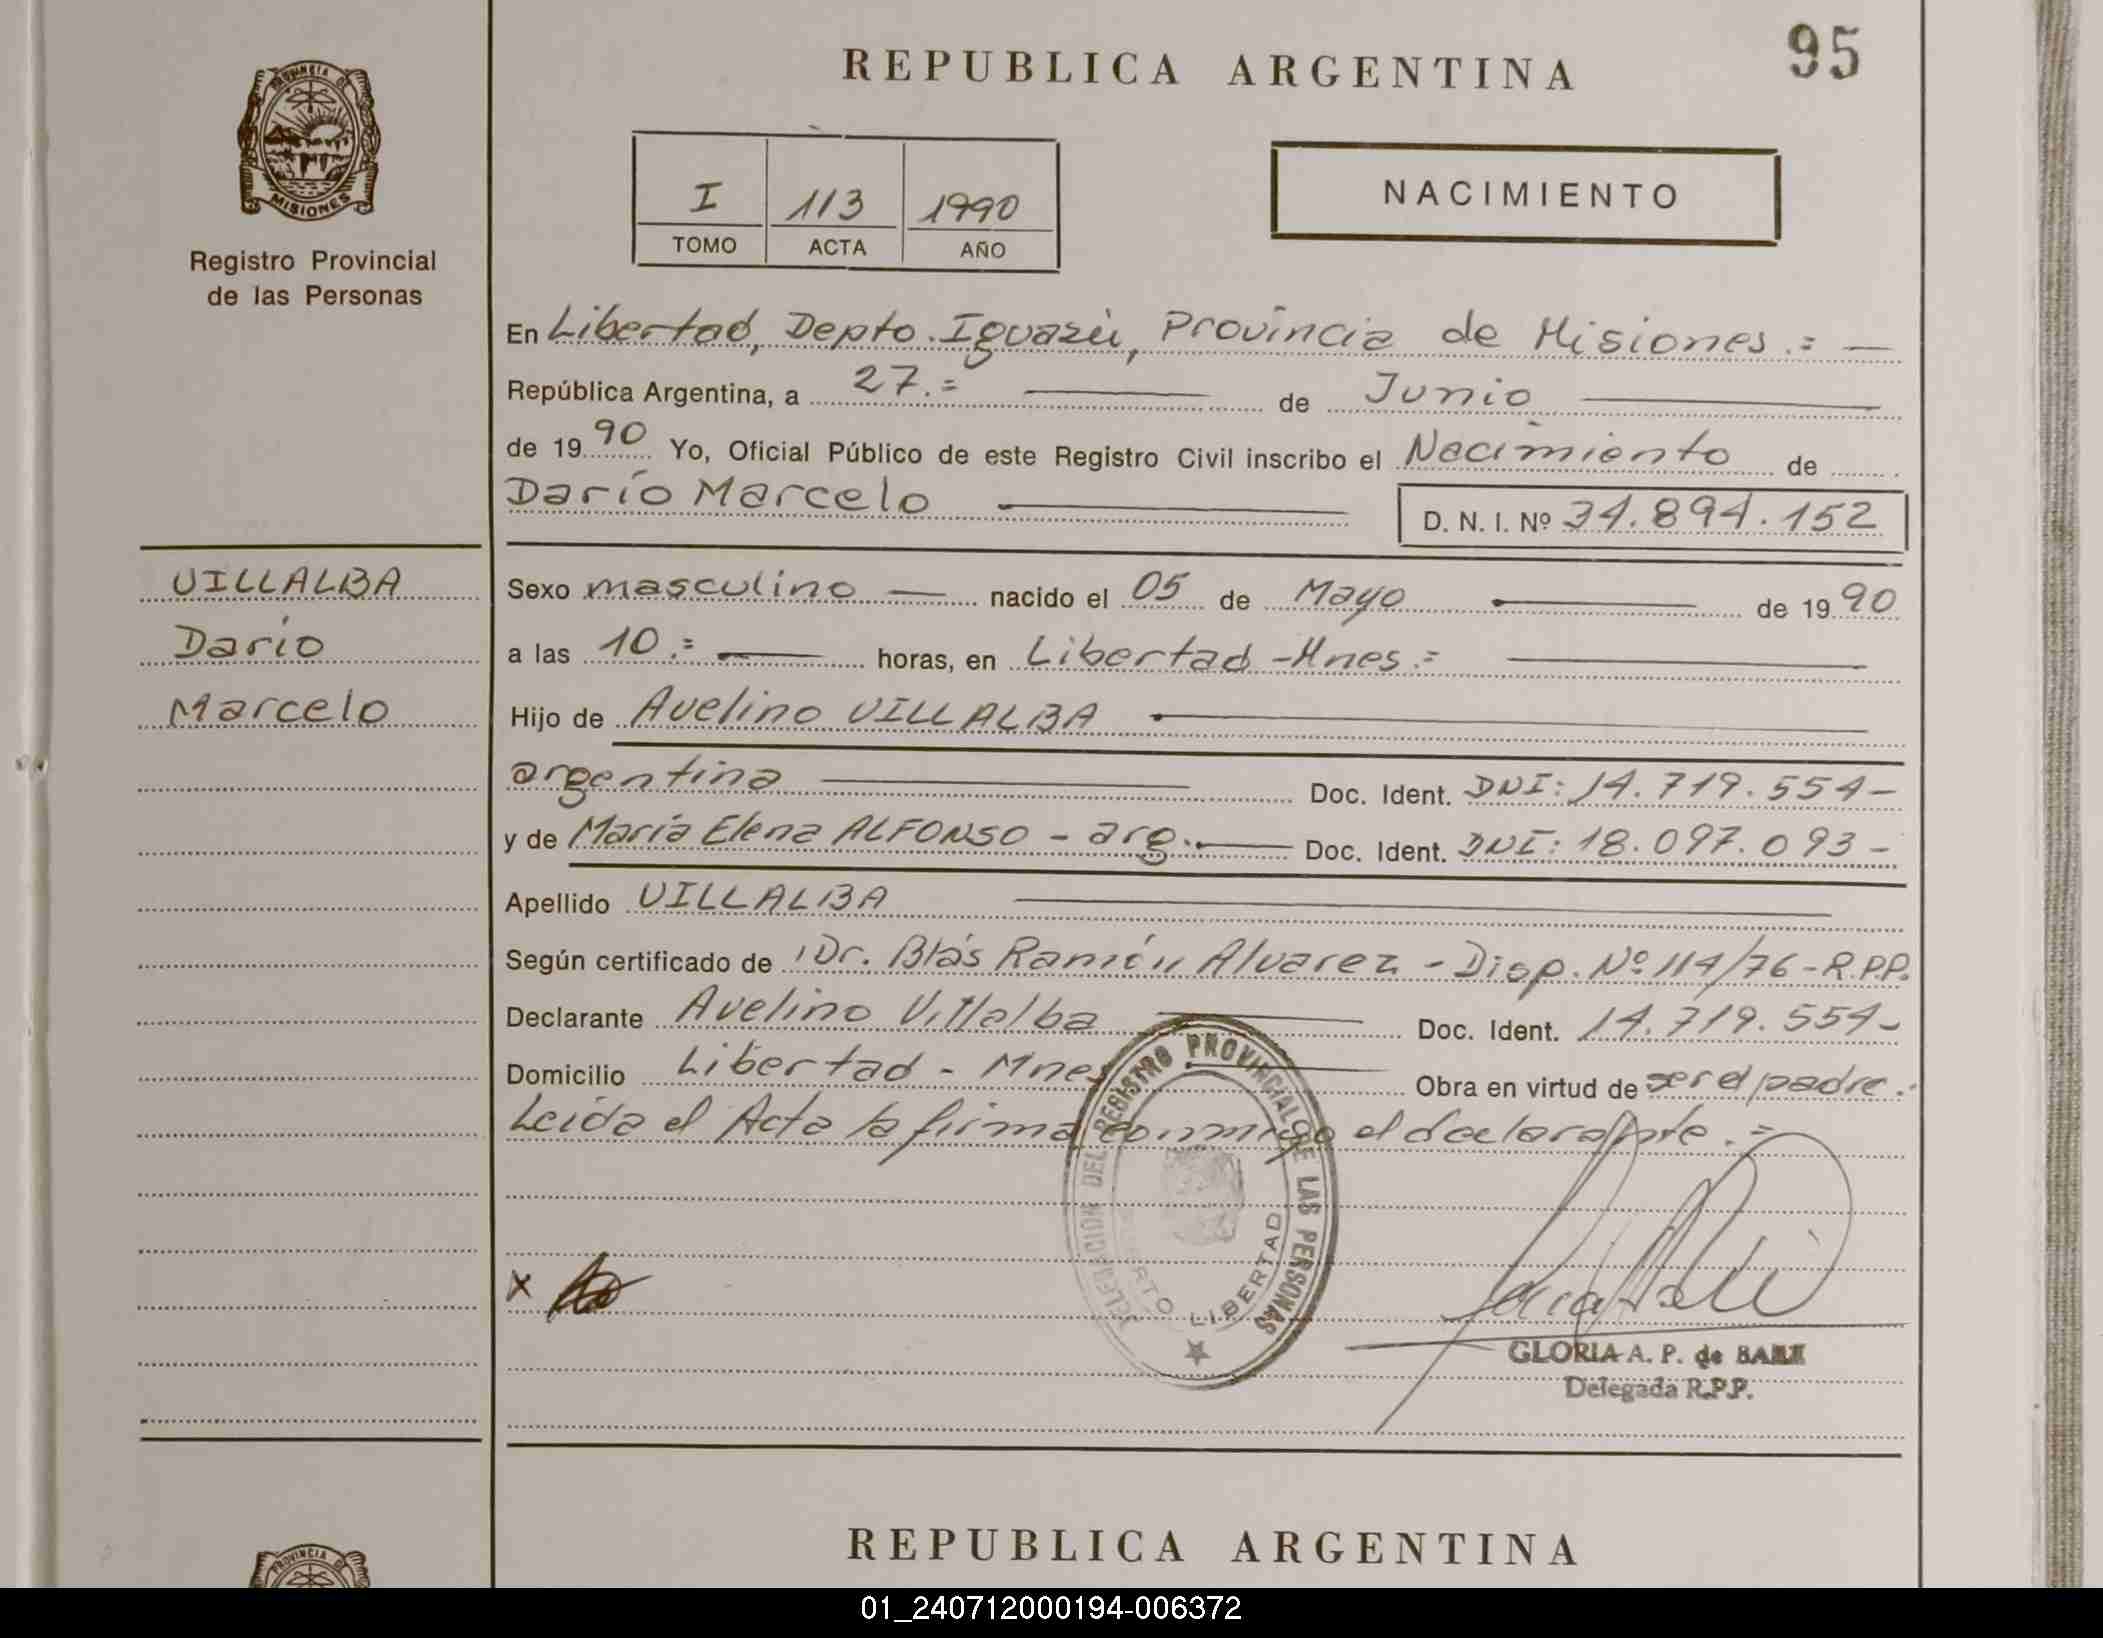 REPUBLICA ARGENTINA
95
PROVINCIA DE
MISIONES
Registro Provincial
de las Personas
I 113 1990
TOMO ACTA AÑO
NACIMIENTO
En Libertad, Depto. Iguazú, Provincia de Misiones.=
República Argentina, a 27.= de Junio
de 1990 Yo, Oficial Público de este Registro Civil inscribo el Nacimiento de
Darío Marcelo D. N. I. Nº 34.894.152
VILLALBA
Darío
Marcelo
Sexo masculino nacido el 05 de Mayo de 1990
a las 10.= horas, en Libertad - Mnes.=
Hijo de Avelino VILLALBA
argentina Doc. Ident. DNI: 14.719.554-
y de María Elena ALFONSO - arg. Doc. Ident. DNI: 18.097.093-
Apellido VILLALBA
Según certificado de Dr. Blás Ramón Alvarez - Disp. Nº 114/76 - R.P.P.
Declarante Avelino Villalba Doc. Ident. 14.719.554-
Domicilio Libertad - Mnes Obra en virtud de ser el padre.
Leída el Acta la firma conmigo el declarante.=
DELEGACION DEL REGISTRO PROVINCIAL DE LAS PERSONAS
PUERTO LIBERTAD
X
GLORIA A. P. de
Delegada R.P.P.
REPUBLICA ARGENTINA
PROVINCIA DE
01_240712000194-006372